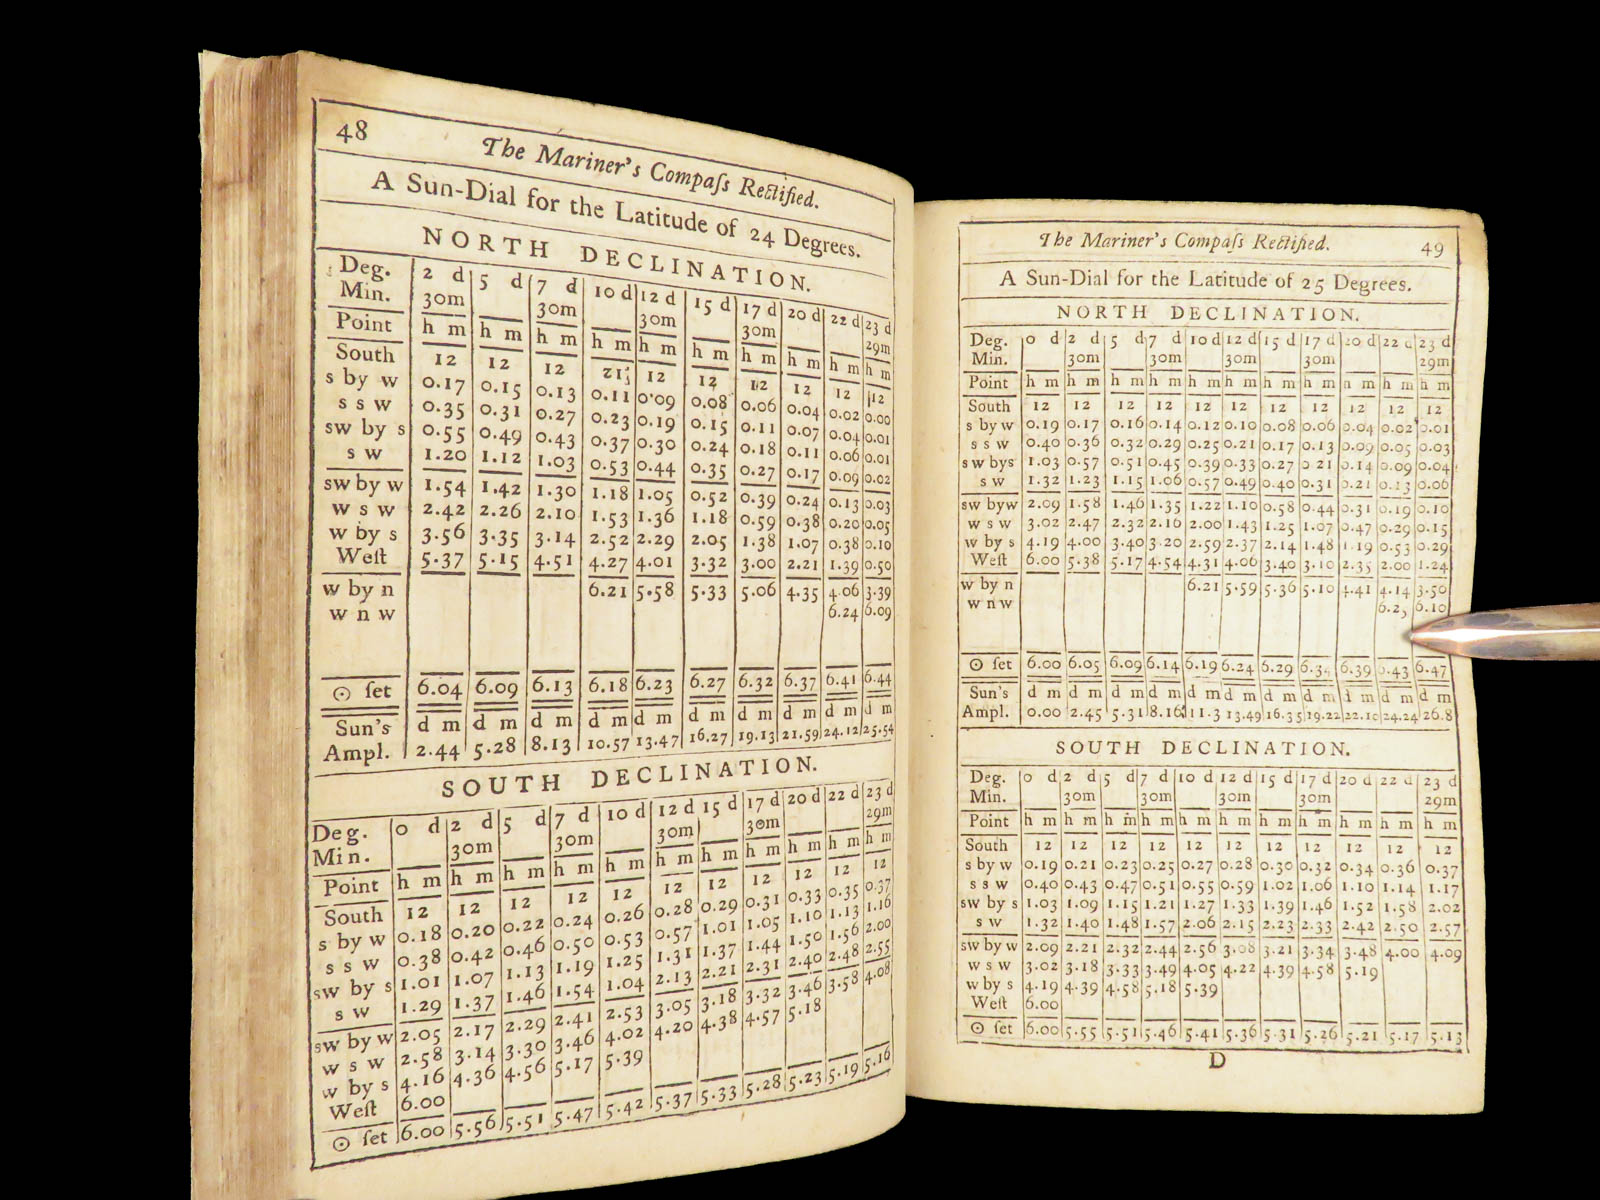 48 The Mariner's Compaſs Rectified.
A Sun-Dial for the Latitude of 24 Degrees.
NORTH DECLINATION.
Deg. 2 d 5 d 7 d 10 d 12 d 15 d 17 d 20 d 22 d 23 d
Min. 30m 30m 30m 30m 29m
Point h m h m h m h m h m h m h m h m h m h m
South 12 12 12 12 12 12 12 12 12
s by w 0.17 0.15 0.13 0.11 0.09 0.08 0.06 0.04 0.02 0.00
s s w 0.35 0.31 0.27 0.23 0.19 0.15 0.11 0.07 0.04 0.01
sw by s 0.55 0.49 0.43 0.37 0.30 0.24 0.18 0.11 0.06 0.01
s w 1.20 1.12 1.03 0.53 0.44 0.35 0.27 0.17 0.09 0.02
sw by w 1.54 1.42 1.30 1.18 1.05 0.52 0.39 0.24 0.13 0.03
w s w 2.42 2.26 2.10 1.53 1.36 1.18 0.59 0.38 0.20 0.05
w by s 3.56 3.35 3.14 2.52 2.29 2.05 1.38 1.07 0.38 0.10
Weſt 5.37 5.15 4.51 4.27 4.01 3.32 3.00 2.21 1.39 0.50
w by n 6.21 5.58 5.33 5.06 4.35 4.06 3.39
w n w 6.24 6.09
☉ ſet 6.04 6.09 6.13 6.18 6.23 6.27 6.32 6.37 6.41 6.44
Sun's d m d m d m d m d m d m d m d m d m d m
Ampl. 2.44 5.28 8.13 10.57 13.47 16.27 19.13 21.59 24.12 25.54
SOUTH DECLINATION.
Deg. 0 d 2 d 5 d 7 d 10 d 12 d 15 d 17 d 20 d 22 d 23 d
Min. 30m 30m 30m 30m 29m
Point h m h m h m h m h m h m h m h m h m h m h m
South 12 12 12 12 12 12 12 12 12 12 12
s by w 0.18 0.20 0.22 0.24 0.26 0.28 0.29 0.31 0.33 0.35 0.37
s s w 0.38 0.42 0.46 0.50 0.53 0.57 1.01 1.05 1.10 1.13 1.16
sw by s 1.01 1.07 1.13 1.19 1.25 1.31 1.37 1.44 1.50 1.56 2.00
s w 1.29 1.37 1.46 1.54 1.04 2.13 2.21 2.31 2.40 2.48 2.55
sw by w 2.05 2.17 2.29 2.41 2.53 3.05 3.18 3.32 3.46 3.58 4.08
w s w 2.58 3.14 3.30 3.46 4.02 4.20 4.38 4.57 5.18
w by s 4.16 4.36 4.56 5.17 5.39
Weſt 6.00
☉ ſet 6.00 5.56 5.51 5.47 5.42 5.37 5.33 5.28 5.23 5.19 5.16
The Mariner's Compaſs Rectified. 49
A Sun-Dial for the Latitude of 25 Degrees.
NORTH DECLINATION.
Deg. 0 d 2 d 5 d 7 d 10 d 12 d 15 d 17 d 20 d 22 d 23 d
Min. 30m 30m 30m 30m 29m
Point h m h m h m h m h m h m h m h m h m h m h m
South 12 12 12 12 12 12 12 12 12 12 12
s by w 0.19 0.17 0.16 0.14 0.12 0.10 0.08 0.06 0.04 0.02 0.01
s s w 0.40 0.36 0.32 0.29 0.25 0.21 0.17 0.13 0.09 0.05 0.03
sw bys 1.03 0.57 0.51 0.45 0.39 0.33 0.27 0 21 0.14 0.09 0.04
s w 1.32 1.23 1.15 1.06 0.57 0.49 0.40 0.31 0.21 0.13 0.06
sw byw 2.09 1.58 1.46 1.35 1.22 1.10 0.58 0.44 0.31 0.19 0.10
w s w 3.02 2.47 2.32 2.16 2.00 1.43 1.25 1.07 0.47 0.29 0.15
w by s 4.19 4.00 3.40 3.20 2.59 2.37 2.14 1.48 1.19 0.53 0.29
Weſt 6.00 5.38 5.17 4.54 4.31 4.06 3.40 3.10 2.35 2.00 1.24
w by n 6.21 5.59 5.36 5.10 4.41 4.14 3.50
w n w 6.10
☉ ſet 6.00 6.05 6.09 6.14 6.19 6.24 6.29 6.34 6.39 6.43 6.47
Sun's d m d m d m d m d m d m d m d m d m d m d m
Ampl. 0.00 2.45 5.31 8.16 11.3 13.49 16.35 19.22 22.10 24.24 26.8
SOUTH DECLINATION.
Deg. 0 d 2 d 5 d 7 d 10 d 12 d 15 d 17 d 20 d 22 d 23 d
Min. 30m 30m 30m 30m 29m
Point h m h m h m h m h m h m h m h m h m h m h m
South 12 12 12 12 12 12 12 12 12 12 12
s by w 0.19 0.21 0.23 0.25 0.27 0.28 0.30 0.32 0.34 0.36 0.37
s s w 0.40 0.43 0.47 0.51 0.55 0.59 1.02 1.06 1.10 1.14 1.17
sw by s 1.03 1.09 1.15 1.21 1.27 1.33 1.39 1.46 1.52 1.58 2.02
s w 1.32 1.40 1.48 1.57 2.06 2.15 2.23 2.33 2.42 2.50 2.57
sw by w 2.09 2.21 2.32 2.44 2.56 3.08 3.21 3.34 3.48 4.00 4.09
w s w 3.02 3.18 3.33 3.49 4.05 4.22 4.39 4.58 5.19
w by s 4.19 4.39 4.58 5.18 5.39
Weſt 6.00
☉ ſet 6.00 5.55 5.51 5.46 5.41 5.36 5.31 5.26 5.21 5.17 5.13
D